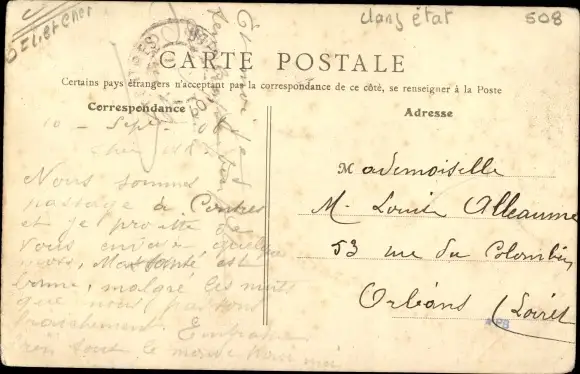 Loir et Cher
dans état
508
CARTE POSTALE
Certains pays étrangers n'acceptant pas la correspondance de ce côté, se renseigner à la Poste
Correspondance
10 - Sept -
Nous sommes
passage à Contres
et je profite de
vous envoyer quelques
mots, Ma santé est
bonne, malgré les nuits
que nous passons
fraichement. Embrasse
tout le monde pour moi
Adresse
Mademoiselle
M. Louise Alleaume
53 rue du Colombier
Orléans (Loiret